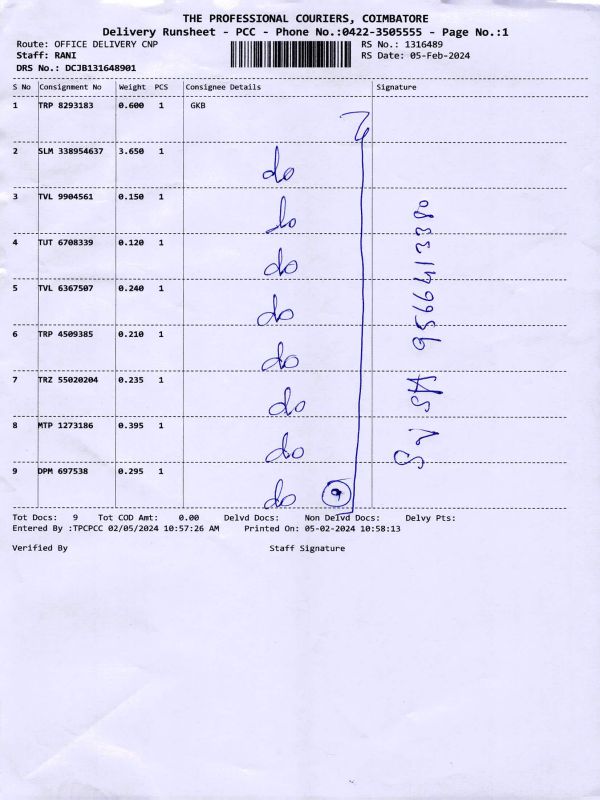 THE PROFESSIONAL COURIERS, COIMBATORE
Delivery Runsheet - PCC - Phone No.:0422-3505555 - Page No.:1
Route: OFFICE DELIVERY CNP RS No.: 1316489
Staff: RANI RS Date: 05-Feb-2024
DRS No.: DCJB131648901
S No Consignment No Weight PCS Consignee Details Signature
1 TRP 8293183 0.600 1 GKB
2 SLM 338954637 3.650 1 do
3 TVL 9904561 0.150 1 do
4 TUT 6708339 0.120 1 do
5 TVL 6367507 0.240 1 do
6 TRP 4509385 0.210 1 do
7 TRZ 55020204 0.235 1 do
8 MTP 1273186 0.395 1 do
9 DPM 697538 0.295 1 do 9
9566413380
Tot Docs: 9 Tot COD Amt: 0.00 Delvd Docs: Non Delvd Docs: Delvy Pts:
Entered By :TPCPCC 02/05/2024 10:57:26 AM Printed On: 05-02-2024 10:58:13
Verified By Staff Signature